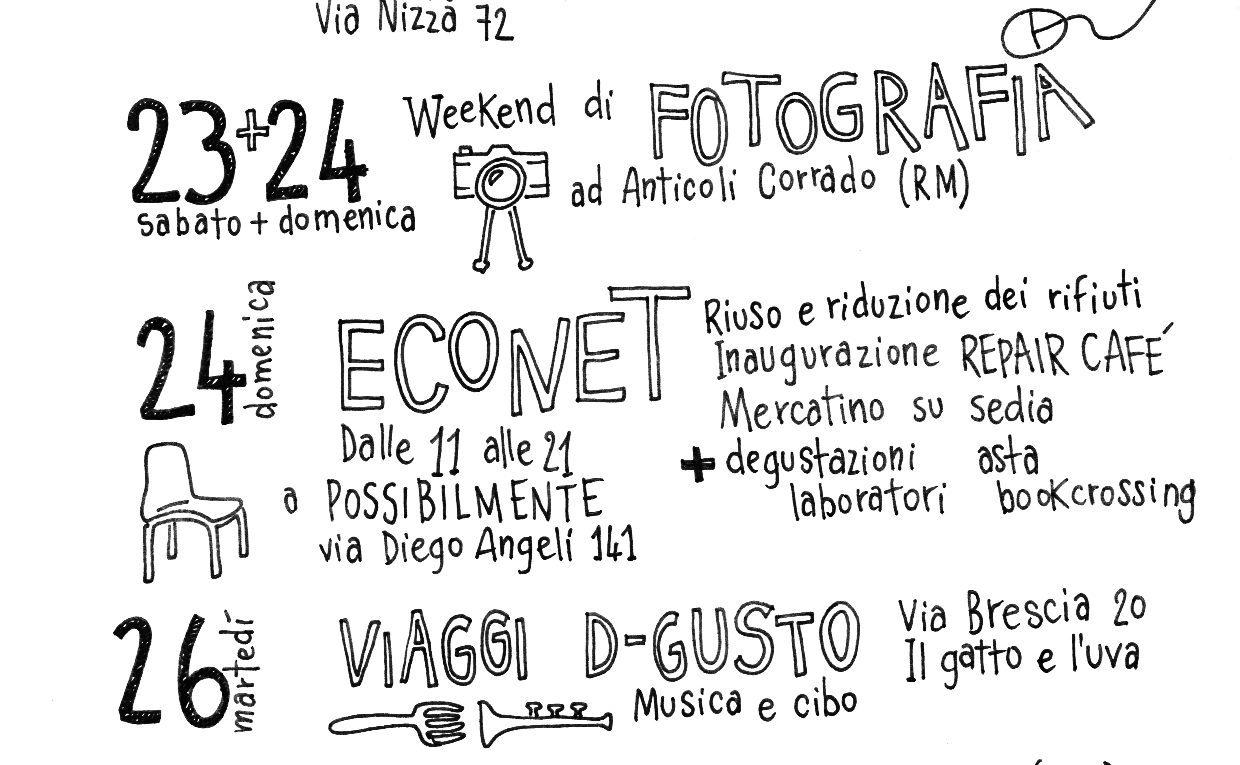 Via Nizza 72
23+24
sabato + domenica
Weekend di FOTOGRAFIA
ad Anticoli Corrado (RM)
24
domenica
ECONET
Dalle 11 alle 21
a POSSIBILMENTE
via Diego Angeli 141
Riuso e riduzione dei rifiuti
Inaugurazione REPAIR CAFÉ
Mercatino su sedia
+ degustazioni asta
laboratori bookcrossing
26
martedí
VIAGGI D-GUSTO
Musica e cibo
Via Brescia 20
Il gatto e l'uva